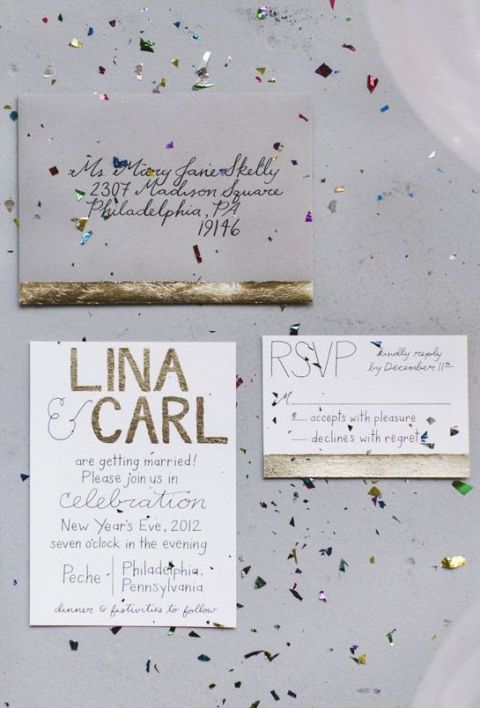 Ms. Mary Jane Skelly
2307 Madison Square
Philadelphia, PA
19146
LINA
& CARL
are getting married!
Please join us in
celebration
New Year's Eve, 2012
seven o'clock in the evening
Peche - Philadelphia,
Pennsylvania
dinner & festivities to follow
RSVP kindly reply
by December 11th
M
accepts with pleasure
declines with regret